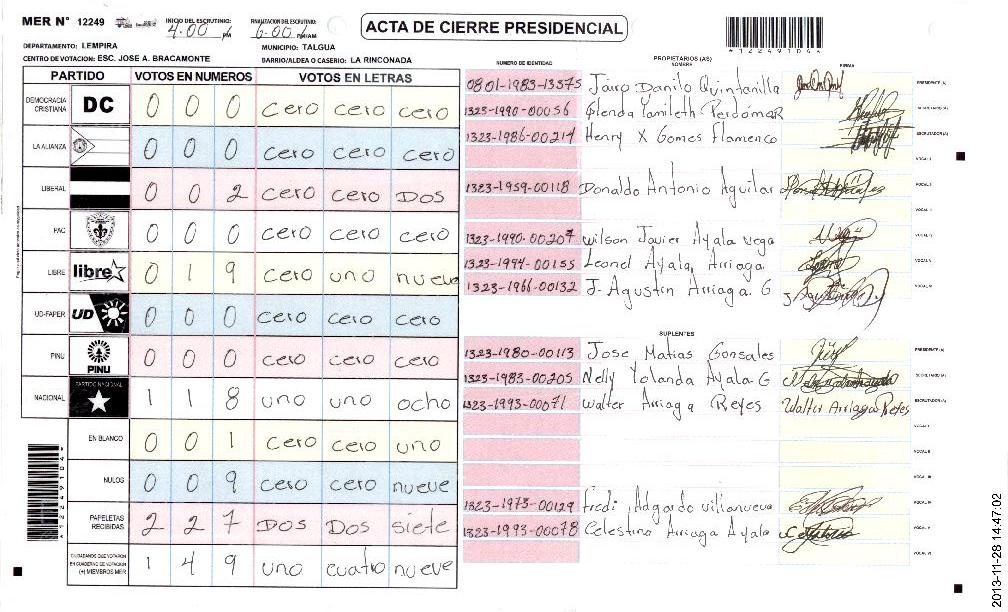 MER N° 12249
INICIO DEL ESCRUTINIO: 4:00 PM
FINALIZACION DEL ESCRUTINIO: 6:00 PM/AM
ACTA DE CIERRE PRESIDENCIAL
1 2 2 4 9 1 0 4 4
DEPARTAMENTO: LEMPIRA
MUNICIPIO: TALGUA
CENTRO DE VOTACION: ESC. JOSE A. BRACAMONTE
BARRIO/ALDEA O CASERIO: LA RINCONADA
PARTIDO VOTOS EN NUMEROS VOTOS EN LETRAS
DEMOCRACIA CRISTIANA DC 0 0 0 cero cero cero
LA ALIANZA 0 0 0 cero cero cero
LIBERAL 0 0 2 cero cero Dos
PAC 0 0 0 cero cero cero
LIBRE libre 0 1 9 cero uno nueve
UD-FAPER UD 0 0 0 cero cero cero
PINU PINU 0 0 0 cero cero cero
NACIONAL PARTIDO NACIONAL 1 1 8 uno uno ocho
EN BLANCO 0 0 1 cero cero uno
NULOS 0 0 9 cero cero nueve
PAPELETAS RECIBIDAS 2 2 7 Dos Dos siete
CIUDADANOS QUE VOTARON EN CUADERNO DE VOTACION (+) MIEMBROS MER 1 4 9 uno cuatro nueve
PROPIETARIOS (AS)
NUMERO DE IDENTIDAD NOMBRE FIRMA
0801-1983-13375 Jairo Danilo Quintanilla PRESIDENTE (A)
1323-1990-00056 Glenda Yamileth Perdomo R SECRETARIO (A)
1323-1986-00214 Henry X Gomes Flamenco ESCRUTADOR (A)
VOCAL I
1323-1959-00118 Donaldo Antonio Aguilar VOCAL II
1323-1990-00207 Wilson Javier Ayala Vega
1323-1994-00155 Leonel Ayala, Arriaga
1323-1966-00132 J. Agustin Arriaga. G
SUPLENTES
1323-1980-00113 Jose, Matias Gonsales PRESIDENTE (A)
1323-1983-00205 Nelly Yolanda Ayala G SECRETARIO (A)
1323-1993-00071 Walter Arriaga Reyes Walter Arriaga Reyes ESCRUTADOR (A)
1323-1973-00129 Fredi Adgardo Villanueva
1323-1993-00078 Celestino Arriaga Ayala
2013-11-28 14:47:02